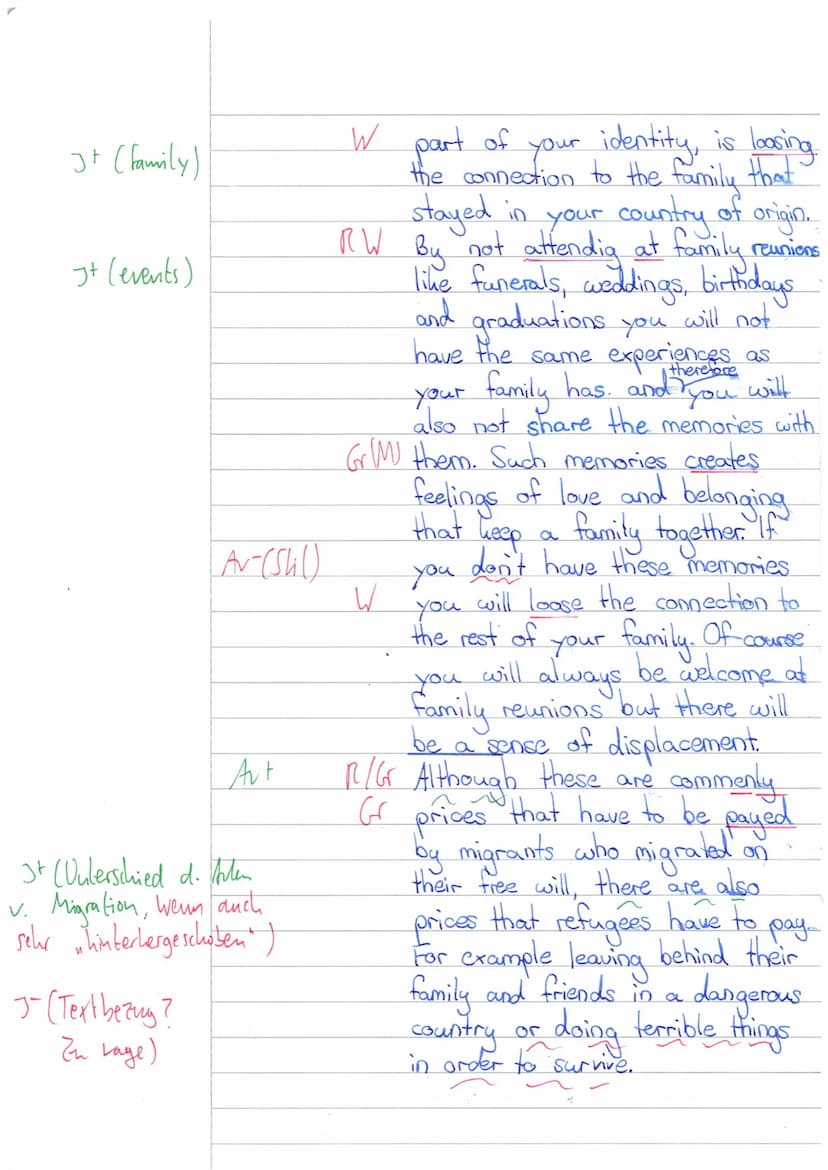 W part of your identity, is loosing
J+ (family) the connection to the family that
stayed in your country of origin.
R W By not attendig at family reunions
J+ (events) like funerals, weddings, birthdays
and graduations you will not
have the same experiences as
therefore
your family has. and you will
also not share the memories with
Gr(M) them. Such memories creates
feelings of love and belonging
that keep a family together. If
Av-(Stil) you don't have these memories
W you will loose the connection to
the rest of your family. Of course
you will always be welcome at
family reunions but there will
be a sense of displacement.
Av+ R/Gr Although these are commenly
Gr prices that have to be payed
by migrants who migrated on
J+ (Unterschied d. Arten their free will, there are also
v. Migration, wenn auch prices that refugees have to pay.
sehr "hinterhergeschoben") For example leaving behind their
family and friends in a dangerous
J- (Textbezug? country or doing terrible things
Zu vage) in order to survive.